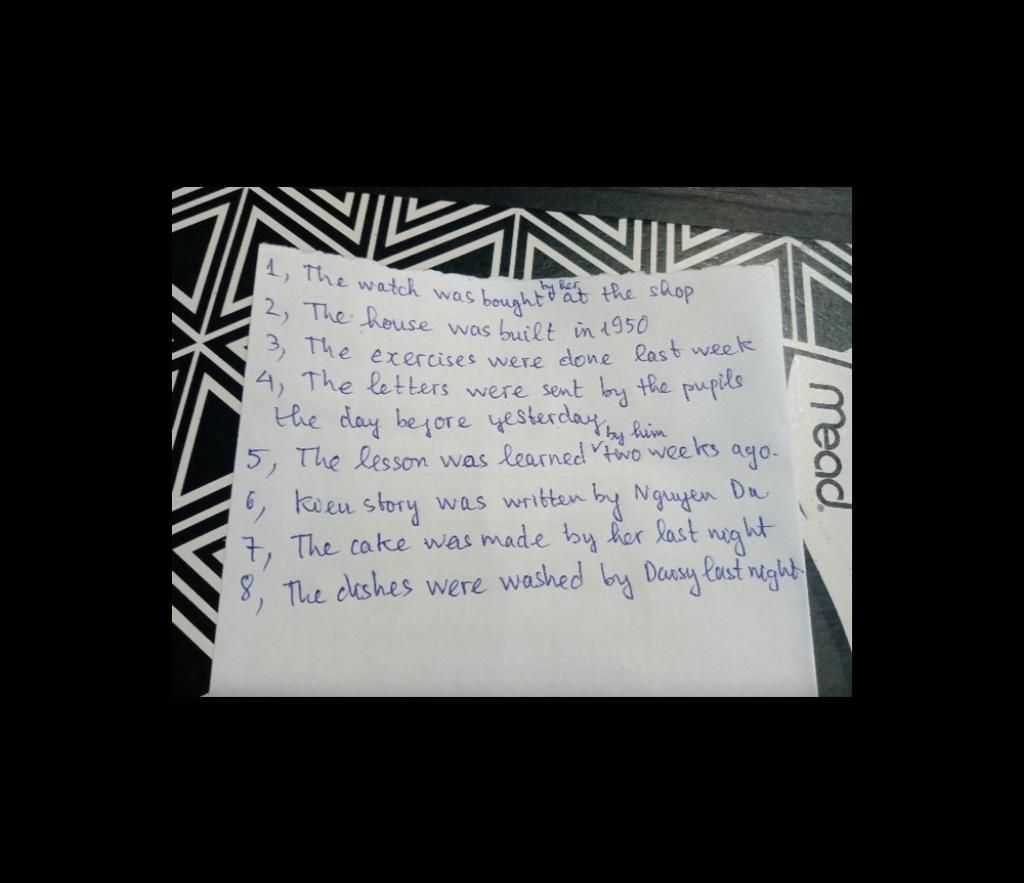 1, The watch was bought by her at the shop
2, The house was built in 1950
3, The exercises were done last week
4, The letters were sent by the pupils
the day before yesterday
5, The lesson was learned by him two weeks ago.
6, Kieu story was written by Nguyen Du
7, The cake was made by her last night
8, The dishes were washed by Daisy last night.
mead